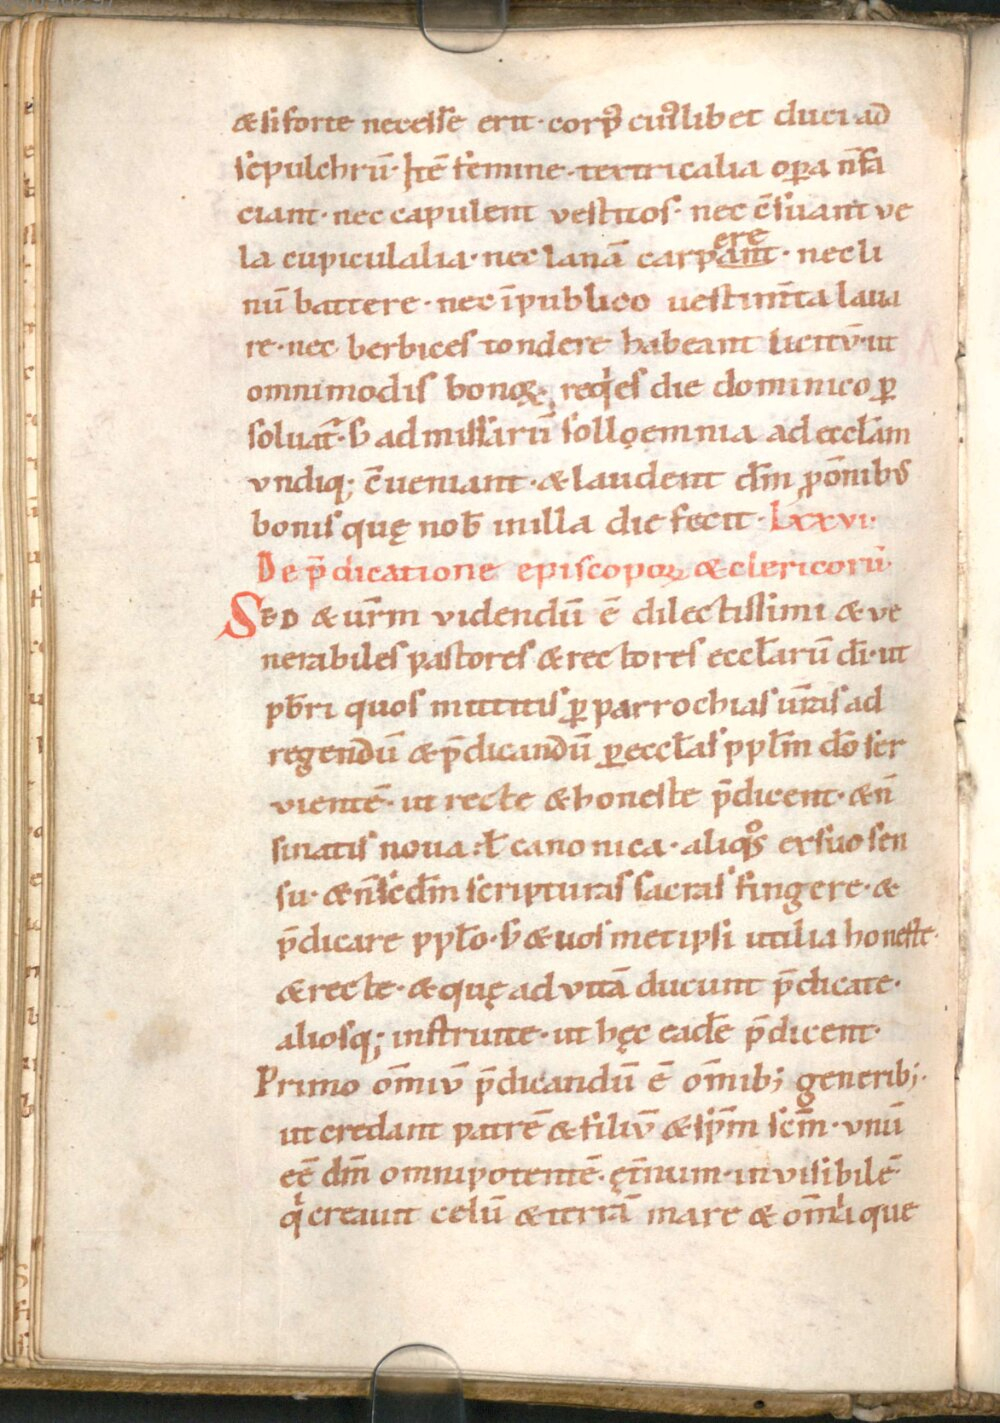 & si forte necesse erit· corpꝰ cuiꝰlibet duci ad
sepulchrū· Itē femine· textricalia oꝑa n̄ fa
ciant· nec capulent vestitos· nec c̄suant ve
la cupiculalia· nec lanā carpant ere· nec li
nū battere· nec ī publico uestim̄ta laua
re· nec berbices tondere habeant licitū· ut
omnimodis bonoꝝ reqͥes die dominico ꝑ
soluat᷑· s; ad missarū sollęemnia ad eccl̄am
vndiq; c̄ueniant· & laudent dm̄ ꝓ om̄ibꝰ
bonis quę nob̄ in illa die fecit· Lxxvi·
De p̄dicatione episcopoꝝ & clericorū·
SED & ur̄m videndū ē dilectissimi & ve
nerabiles pastores & rectores eccl̄arū dī· ut
pb̄ri quos mittitis ꝑ parrochias ur̄as ad
regendū & p̄dicandū ꝑ eccl̄as ppl̄m dō ser
vientē· ut recte & honeste p̄dicent· & n̄
sinatis noua· ł canonica· aliqͦs ex suo sen
su· & n̄ scdm̄ scripturas sacras fingere· &
p̄dicare ppl̄o· s; & uos met ipsi utilia honeste·
& recte· & quę ad vitā ducunt p̄dicate·
aliosq; instruite· ut hęc eadē p̄dicent·
Primo om̄iū p̄dicandū ē om̄ib; generib;·
ut credant patrē & filiū & sp̄m sc̄m· vnū
eē dm̄ omnipotentē· ęt̄num· invisibilē·
qͥ creauit celū & terrā mare & om̄ia que